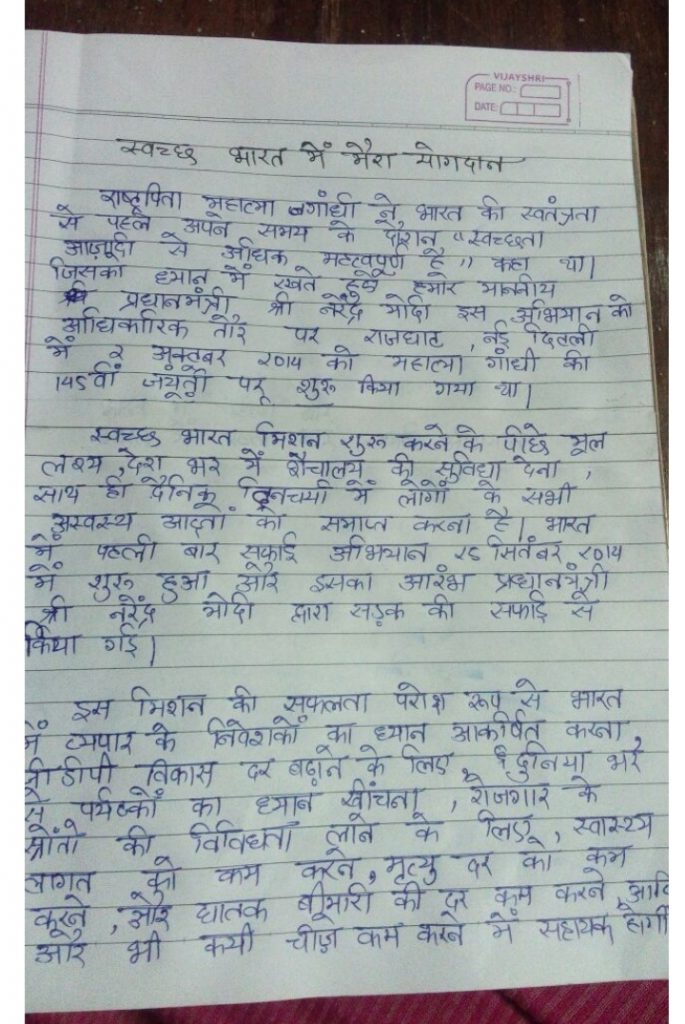 VIJAYSHRI
PAGE NO.:
DATE:
स्वच्छ भारत में मेरा योगदान
राष्ट्रपिता महात्मा गांधी ने भारत की स्वतंत्रता
से पहले अपने समय के दौरान "स्वच्छता
आज़ादी से अधिक महत्वपूर्ण है" कहा था।
जिसका ध्यान में रखते हुये हमारे माननीय
प्रधानमंत्री श्री नरेंद्र मोदी इस अभियान को
आधिकारिक तौर पर राजघाट, नई दिल्ली
में २ अक्टूबर २०१४ को महात्मा गांधी की
145वीं जयंती पर शुरू किया गया था।
स्वच्छ भारत मिशन शुरू करने के पीछे मूल
लक्ष्य, देश भर में शौचालय की सुविधा देना,
साथ ही दैनिक दिनचर्या में लोगों के सभी
अस्वस्थ आदतों को समाप्त करना है। भारत
में पहली बार सफाई अभियान २५ सितंबर २०१४
में शुरू हुआ और इसका आरंभ प्रधानमंत्री
श्री नरेंद्र मोदी द्वारा सड़क की सफाई से
किया गई।
इस मिशन की सफलता परोक्ष रूप से भारत
में व्यपार के निवेशकों का ध्यान आकर्षित करना,
जीडीपी विकास दर बढ़ाने के लिए, दुनिया भर
से पर्यटकों का ध्यान खींचना, रोजगार के
स्रोतों की विविधता लाने के लिए, स्वास्थ्य
लागत को कम करने, मृत्यु दर को कम
करने, और घातक बीमारी की दर कम करने आदि
और भी कयी चीज़ कम करने में सहायक होगी